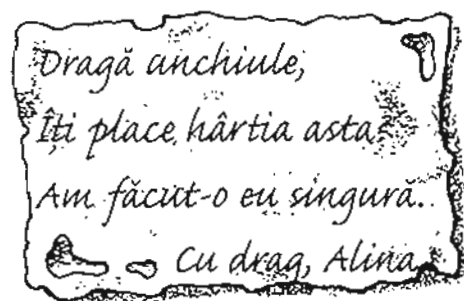 Dragă unchiule,
Îți place hârtia asta?
Am făcut-o eu singură.
Cu drag, Alina